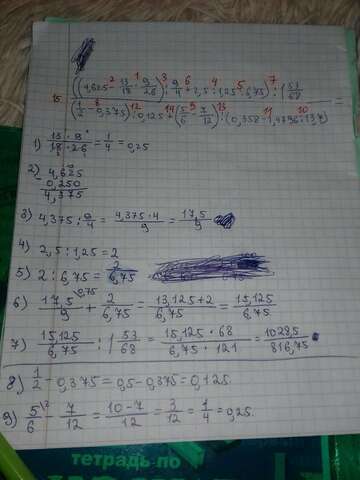 ((4,625 - 13/18 · 9/26) : 9/4 + 2,5 : 1,25 : 6,75) : 1 53/68
15 =
(1/2 - 0,375) : 0,125 + (5/6 - 7/12) : (0,358 - 1,4796 : 13,7)
1) 13 · 9 / 18 · 26 = 1/4 = 0,25
2) 4,625
- 0,250
4,375
3) 4,375 : 9/4 = 4,375 · 4 / 9 = 17,5 / 9
4) 2,5 : 1,25 = 2
5) 2 : 6,75 = 2 / 6,75
6) 17,5 / 9 + 2 / 6,75 = 13,125 + 2 / 6,75 = 15,125 / 6,75
7) 15,125 / 6,75 : 1 53/68 = 15,125 · 68 / 6,75 · 121 = 1028,5 / 816,75
8) 1/2 - 0,375 = 0,5 - 0,375 = 0,125.
9) 5/6 - 7/12 = 10 - 7 / 12 = 3/12 = 1/4 = 0,25.
тетрадь по